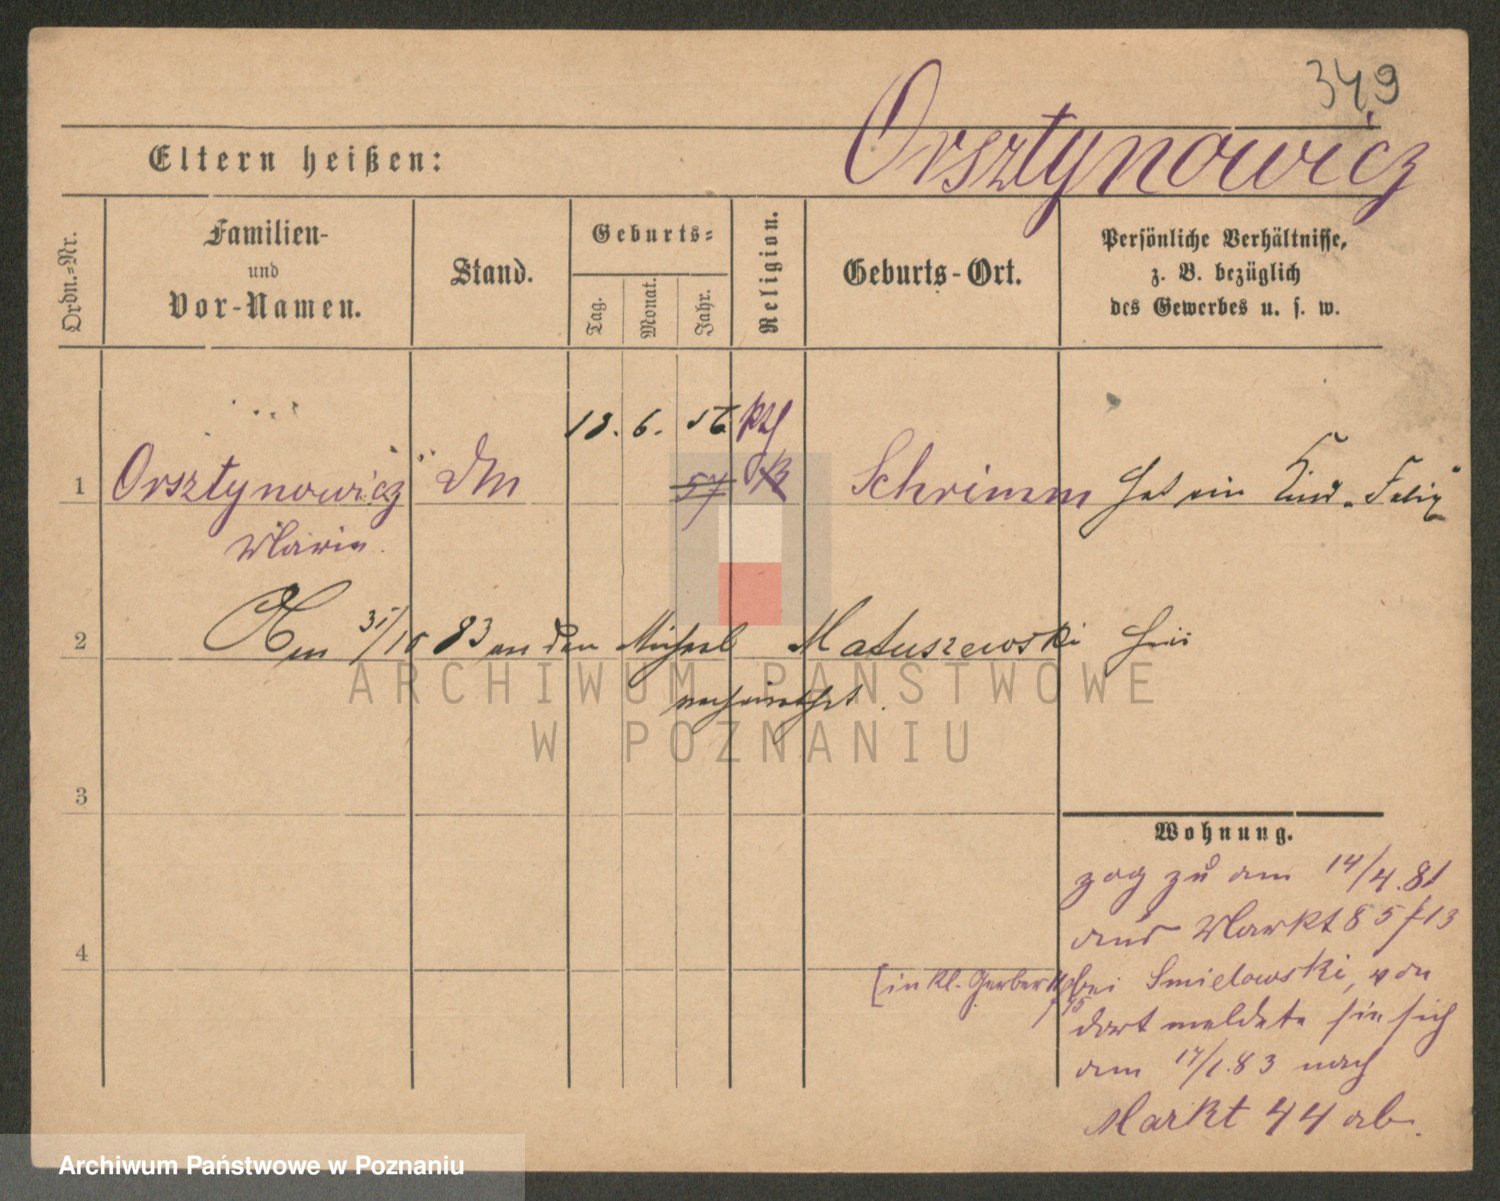 349
Orsztynowicz
Eltern heißen:
Ordn.-Nr.
Familien-
und
Vor-Namen.
Stand.
Geburts-
Tag.
Monat.
Jahr.
Religion.
Geburts-Ort.
Persönliche Verhältnisse,
z. B. bezüglich
des Gewerbes u. s. w.
13. 6. 56 kth
1 Orsztynowicz 57 k Schrimm hat ein Kind "Felix"
Marie.
2 Am 31/10 83 an den Michael Matuszewski hier
verheirathet.
ARCHIWUM PAŃSTWOWE
W POZNANIU
3
Wohnung.
zog zu am 14/4.81
aus Markt 85 f 13
4
[in kl. Gerber bei Smielowski, von
dort meldete sie sich
am 17/1.83 nach
Markt 44 ab.
Archiwum Państwowe w Poznaniu